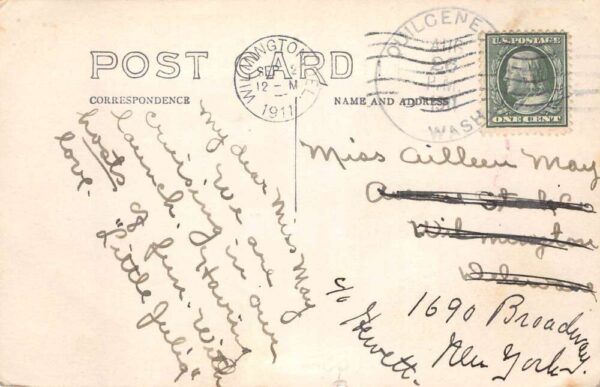 POST CARD
CORRESPONDENCE
NAME AND ADDRESS
WILMINGTON, DEL.
SEP 2
12 - M
1911
QUILCENE
WASH
U.S. POSTAGE
ONE CENT
My dear Miss May
We are
cruising in our
launch. Having
hosts of fun. With
love.
"Little Julia"
Miss Ailleen May
Wilmington
Delaware
c/o Hewett.
1690 Broadway.
New York.